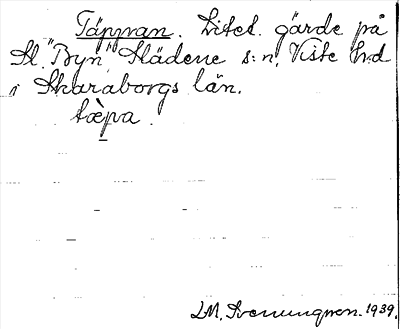 Täppan. Litet gärde på
St. "Byn" Slädene s:n, Viste h:d
i Skaraborgs län.
tæ̀pa.
LM. Svenungson. 1939.